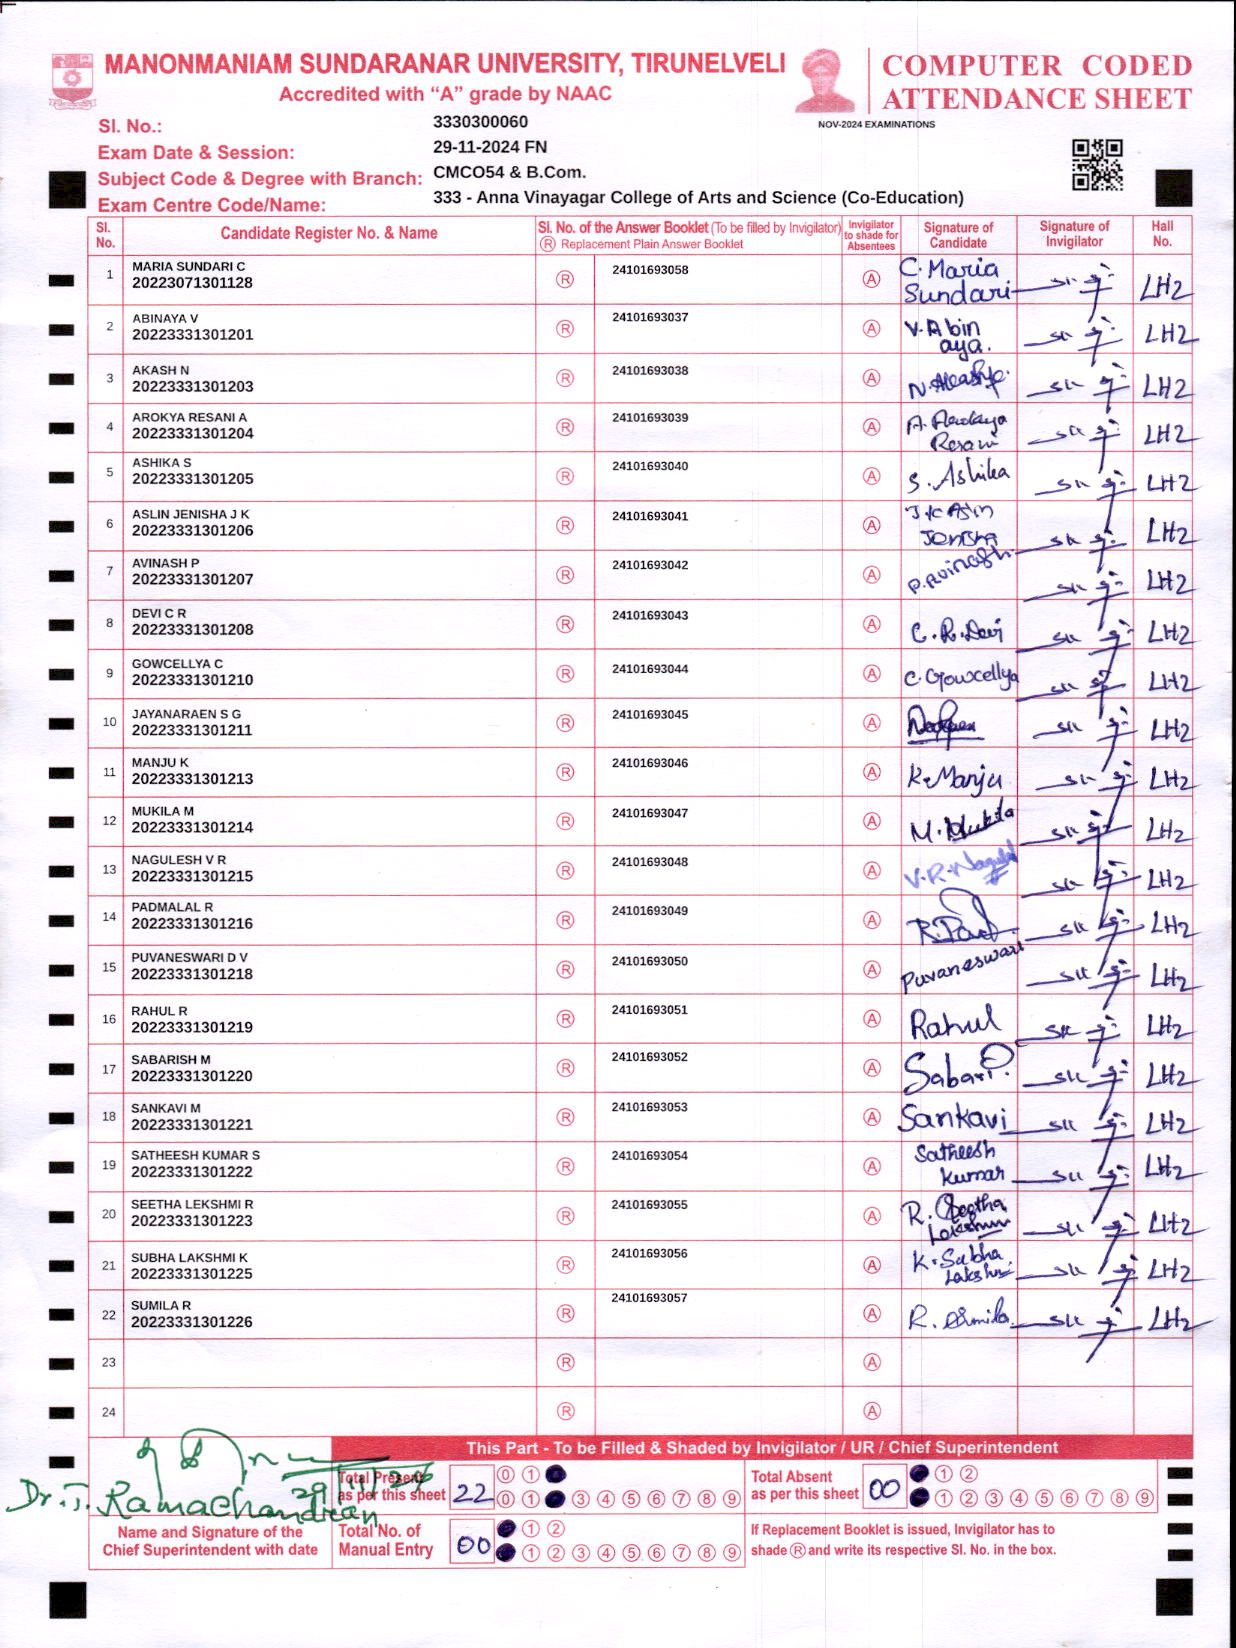 MANONMANIAM SUNDARANAR UNIVERSITY, TIRUNELVELI
Accredited with “A” grade by NAAC
COMPUTER CODED
ATTENDANCE SHEET
NOV-2024 EXAMINATIONS
Sl. No.: 3330300060
Exam Date & Session: 29-11-2024 FN
Subject Code & Degree with Branch: CMCO54 & B.Com.
Exam Centre Code/Name: 333 - Anna Vinayagar College of Arts and Science (Co-Education)
Sl. No. Candidate Register No. & Name Sl. No. of the Answer Booklet (To be filled by Invigilator) Ⓡ Replacement Plain Answer Booklet Invigilator to shade for Absentees Signature of Candidate Signature of Invigilator Hall No.
1 MARIA SUNDARI C 20223071301128 Ⓡ 24101693058 Ⓐ C. Maria Sundari LH2
2 ABINAYA V 20223331301201 Ⓡ 24101693037 Ⓐ V. Abinaya. LH2
3 AKASH N 20223331301203 Ⓡ 24101693038 Ⓐ LH2
4 AROKYA RESANI A 20223331301204 Ⓡ 24101693039 Ⓐ A. Arokya Resani LH2
5 ASHIKA S 20223331301205 Ⓡ 24101693040 Ⓐ S. Ashika LH2
6 ASLIN JENISHA J K 20223331301206 Ⓡ 24101693041 Ⓐ LH2
7 AVINASH P 20223331301207 Ⓡ 24101693042 Ⓐ P. Avinash LH2
8 DEVI C R 20223331301208 Ⓡ 24101693043 Ⓐ C. R. Devi LH2
9 GOWCELLYA C 20223331301210 Ⓡ 24101693044 Ⓐ C. Gowcellya LH2
10 JAYANARAEN S G 20223331301211 Ⓡ 24101693045 Ⓐ LH2
11 MANJU K 20223331301213 Ⓡ 24101693046 Ⓐ K. Manju LH2
12 MUKILA M 20223331301214 Ⓡ 24101693047 Ⓐ M. Mukila LH2
13 NAGULESH V R 20223331301215 Ⓡ 24101693048 Ⓐ V. R. LH2
14 PADMALAL R 20223331301216 Ⓡ 24101693049 Ⓐ LH2
15 PUVANESWARI D V 20223331301218 Ⓡ 24101693050 Ⓐ Puvaneswari LH2
16 RAHUL R 20223331301219 Ⓡ 24101693051 Ⓐ Rahul LH2
17 SABARISH M 20223331301220 Ⓡ 24101693052 Ⓐ Sabari LH2
18 SANKAVI M 20223331301221 Ⓡ 24101693053 Ⓐ Sankavi LH2
19 SATHEESH KUMAR S 20223331301222 Ⓡ 24101693054 Ⓐ Satheesh Kumar LH2
20 SEETHA LEKSHMI R 20223331301223 Ⓡ 24101693055 Ⓐ R. Seetha LH2
21 SUBHA LAKSHMI K 20223331301225 Ⓡ 24101693056 Ⓐ K. Subha LH2
22 SUMILA R 20223331301226 Ⓡ 24101693057 Ⓐ R. Sumila LH2
23 Ⓡ Ⓐ
24 Ⓡ Ⓐ
This Part - To be Filled & Shaded by Invigilator / UR / Chief Superintendent
29/11/24
Dr. T. Ramachandran
Name and Signature of the
Chief Superintendent with date
Total Present
as per this sheet 22
0 1
0 1 3 4 5 6 7 8 9
Total Absent
as per this sheet 00
1 2
1 2 3 4 5 6 7 8 9
Total No. of
Manual Entry 00
1 2
1 2 3 4 5 6 7 8 9
If Replacement Booklet is issued, Invigilator has to
shade Ⓡ and write its respective Sl. No. in the box.